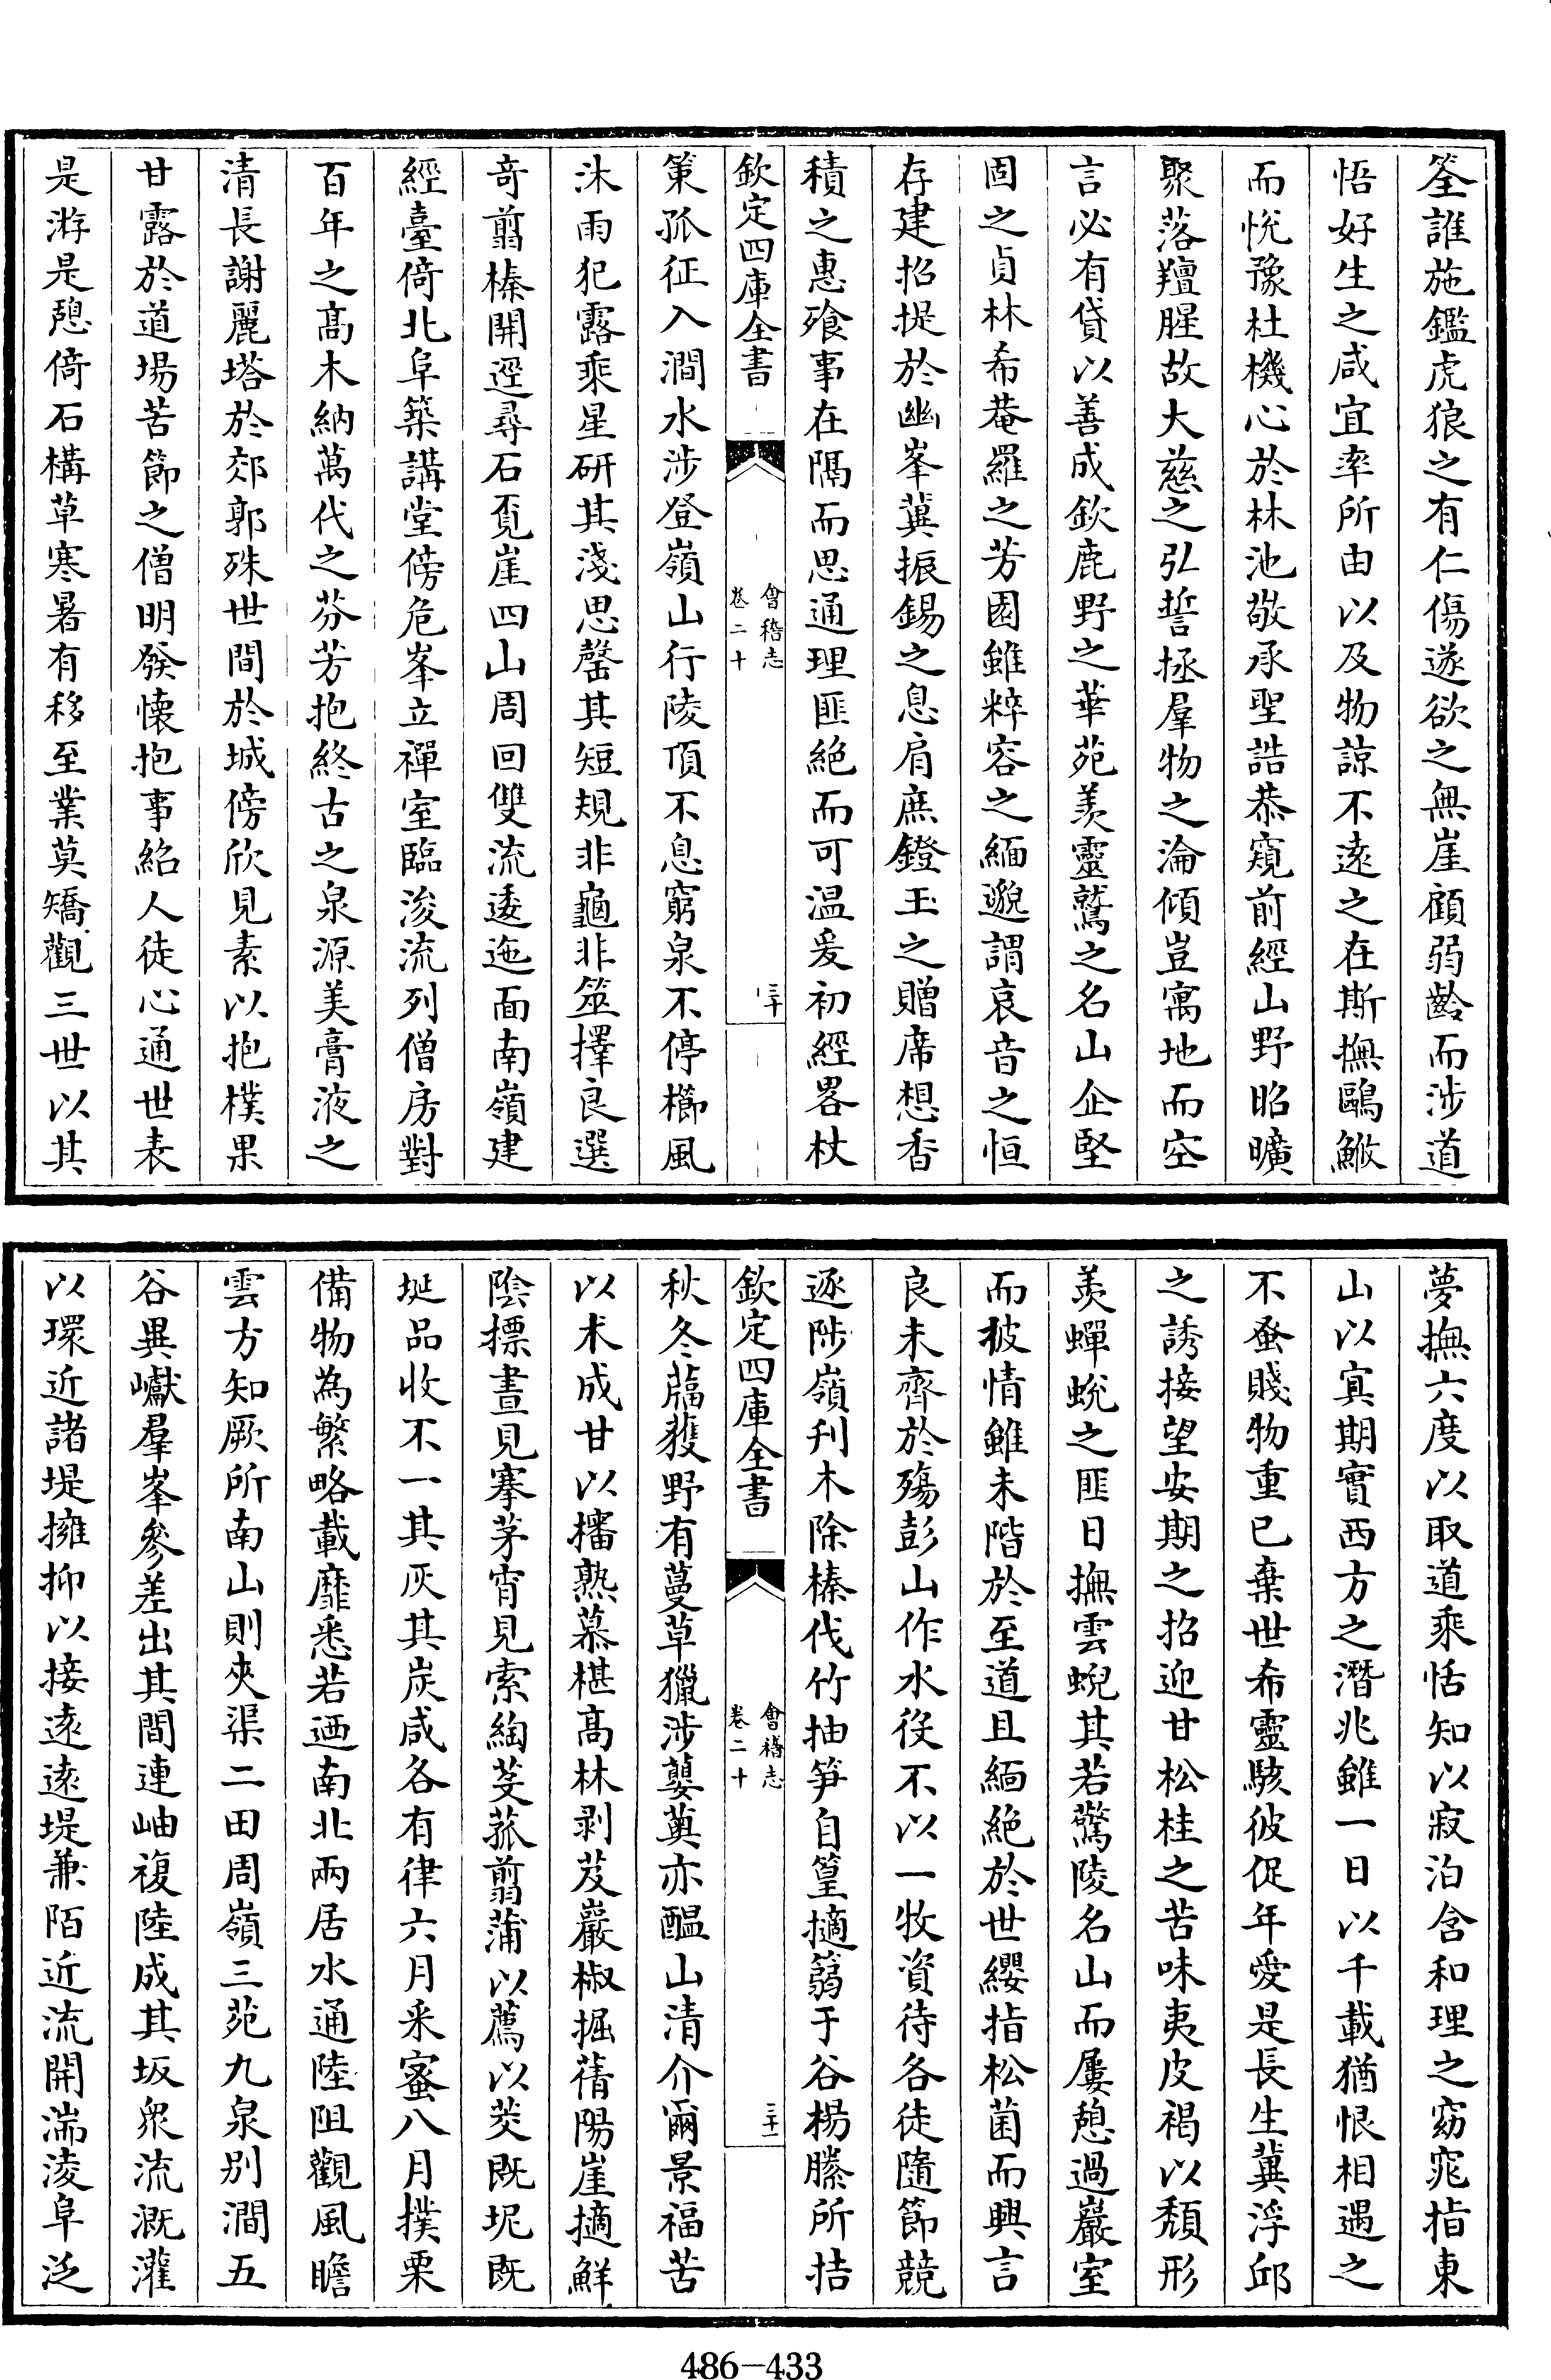 筌誰施鑑虎狼之有仁傷遂欲之無崖顧弱齡而涉道
悟好生之咸宜率所由以及物諒不遠之在斯撫鷗鮍
而悅豫杜機心於林池敬承聖誥恭窺前經山野昭曠
聚落羶腥故大慈之弘誓拯羣物之淪傾豈寓地而空
言必有貸以善成欽鹿野之華苑羨靈鷲之名山企堅
固之貞林希菴羅之芳園雖粹容之緬邈謂哀音之恒
存建招提於幽峯冀振錫之息肩庶鐙王之贈席想香
積之惠飱事在隔而思通理匪絶而可温爰初經畧杖
欽定四庫全書
會稽志
卷二十
三十
策孤征入澗水涉登嶺山行陵頂不息窮泉不停櫛風
沐雨犯露乘星研其淺思罄其短規非龜非筮擇良選
奇翦榛開逕尋石覓崖四山周回雙流逶迤面南嶺建
經臺倚北阜築講堂傍危峯立禪室臨浚流列僧房對
百年之高木納萬代之芬芳抱終古之泉源美膏液之
清長謝麗塔於郊郭殊世間於城傍欣見素以抱樸果
甘露於道場苦節之僧明發懷抱事紹人徒心通世表
是游是憩倚石構草寒暑有移至業莫矯觀三世以其
夢撫六度以取道乘恬知以寂泊含和理之窈窕指東
山以寘期實西方之潛兆雖一日以千載猶恨相遇之
不蚤賤物重已棄世希靈駭彼促年愛是長生冀浮邱
之誘接望安期之招迎甘松桂之苦味夷皮褐以頹形
羨蟬蛻之匪日撫雲蜺其若驚陵名山而屢憩過巖室
而披情雖未階於至道且緬絶於世纓指松菌而興言
良未齊於殤彭山作水役不以一牧資待各徒隨節競
逐陟嶺刋木除榛伐竹抽笋自篁擿篛于谷楊勝所拮
欽定四庫全書
會稽志
卷二十
三十一
秋冬𦽦獲野有蔓草獵涉蘡薁亦醞山清介爾景福苦
以朮成甘以𣞙熟慕椹高林剥芨巖椒掘蒨陽崖擿鮮
陰摽晝見搴茅宵見索綯芟菰翦蒲以薦以茭既坭既
埏品收不一其灰其炭咸各有律六月采蜜八月撲栗
備物為繁略載靡悉若迺南北兩居水通陸阻觀風瞻
雲方知厥所南山則夾渠二田周嶺三苑九泉别澗五
谷異巘羣峯參差出其間連岫複陸成其坂衆流溉灌
以環近諸堤擁抑以接遠遠堤兼陌近流開湍淩阜泛
486-433